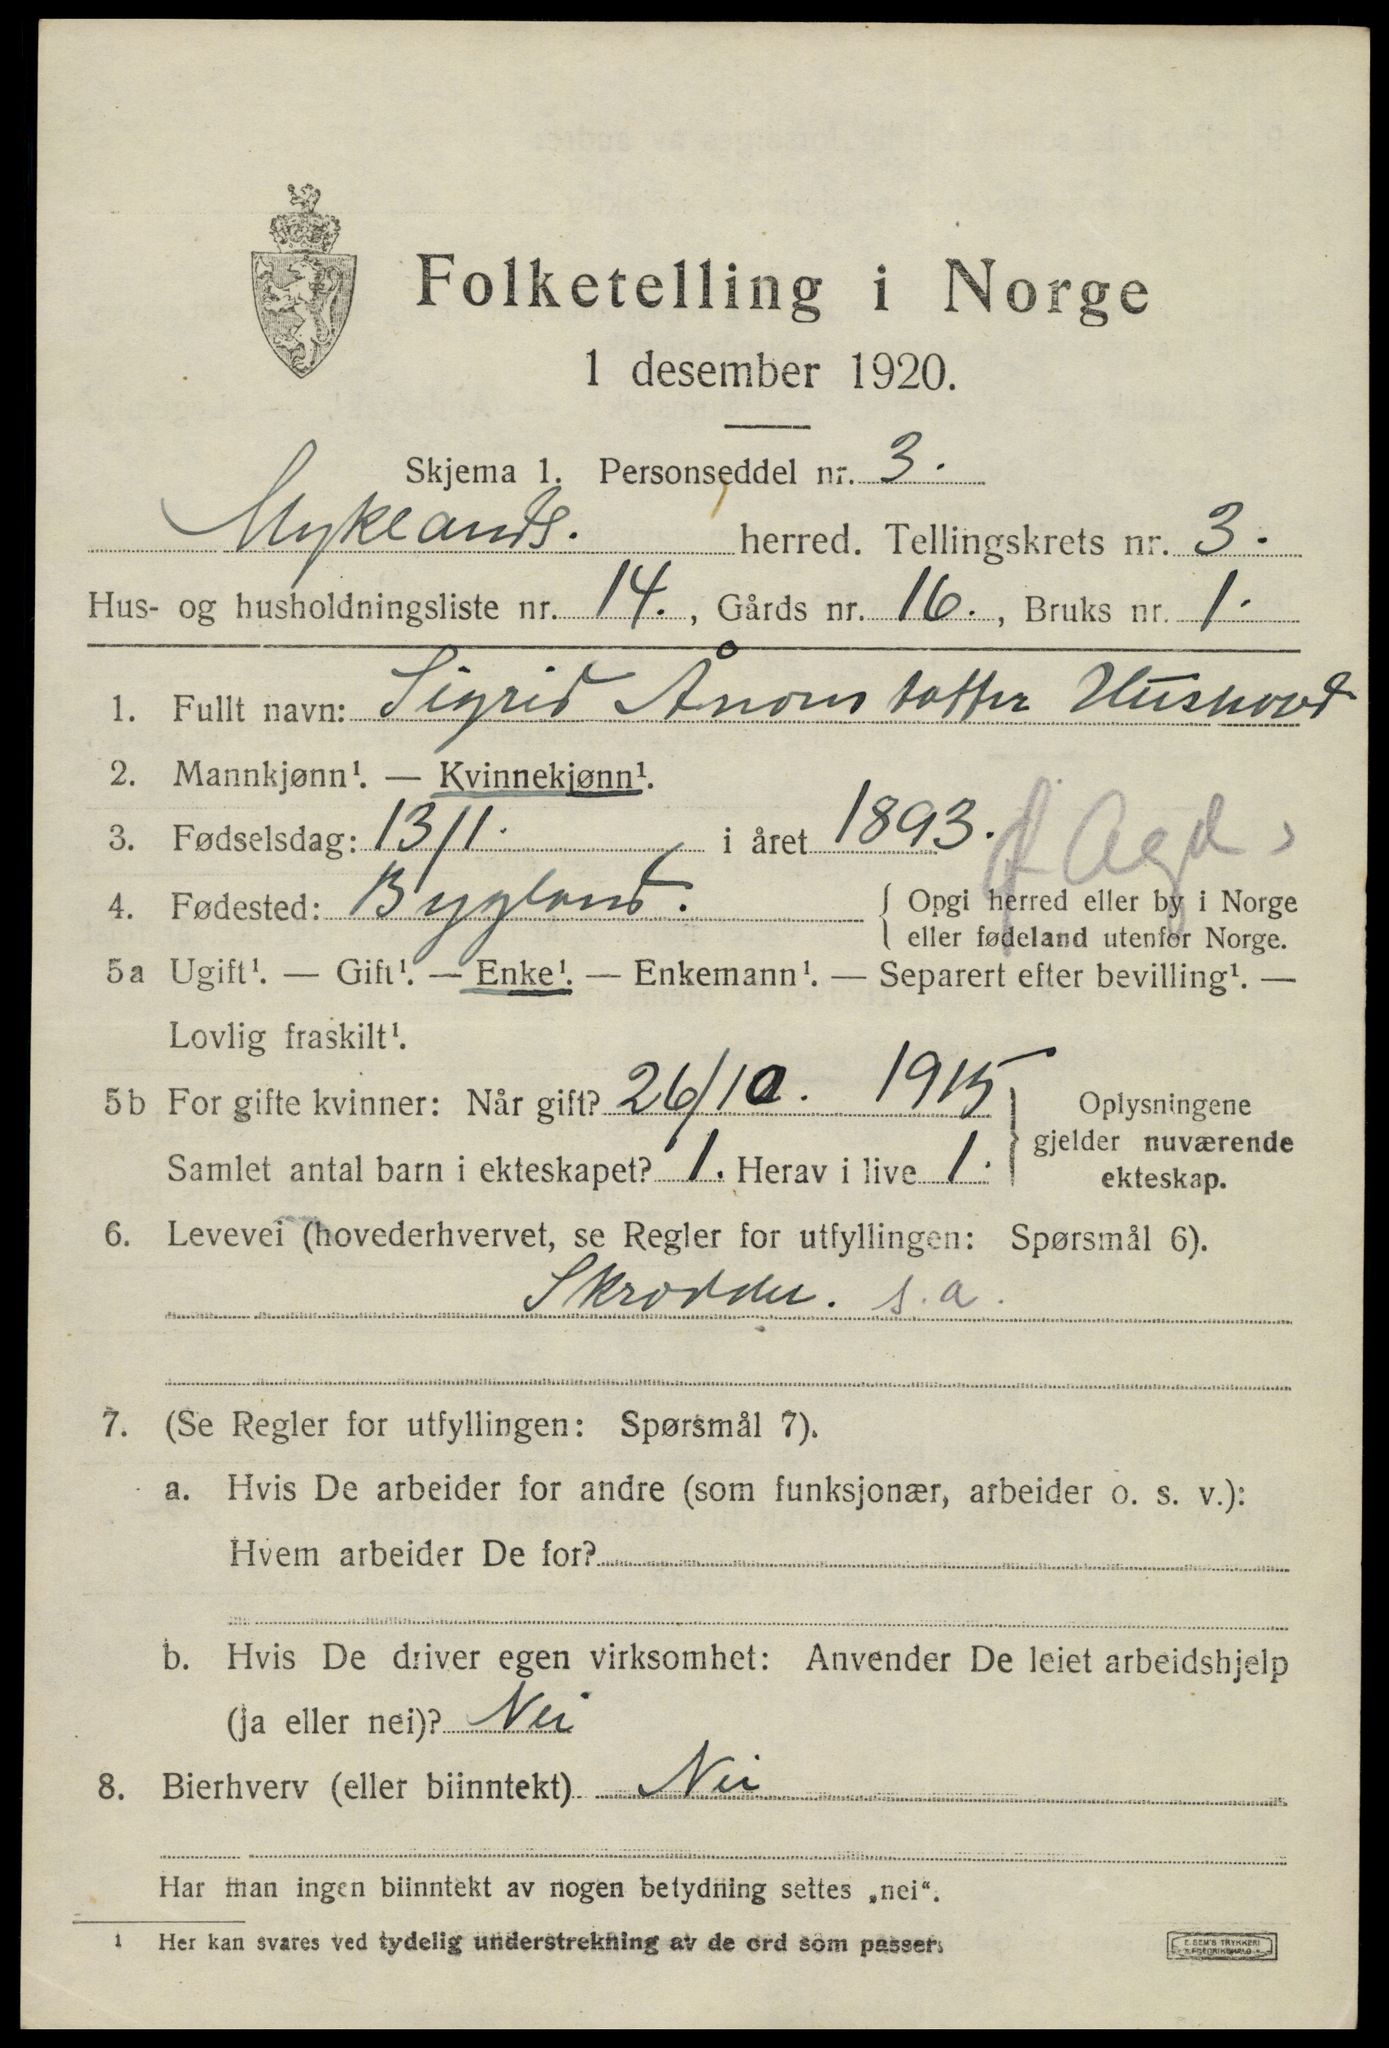 Folketelling i Norge
1 desember 1920.
Skjema 1. Personseddel nr. 3.
Myklands. herred. Tellingskrets nr. 3.
Hus- og husholdningsliste nr. 14., Gårds nr. 16., Bruks nr. 1.
1. Fullt navn: Sigrid Ånons datter Hushovd
2. Mannkjønn¹. — Kvinnekjønn¹.
3. Fødselsdag: 13/1. i året 1893.
Agd
4. Fødested: Bygland. { Opgi herred eller by i Norge
eller fødeland utenfor Norge.
5a Ugift¹. — Gift¹. — Enke¹. — Enkemann¹. — Separert efter bevilling¹. —
Lovlig fraskilt¹.
5b For gifte kvinner: Når gift? 26/10. 1915 } Oplysningene
gjelder nuværende
ekteskap.
Samlet antal barn i ekteskapet? 1. Herav i live 1.
6. Levevei (hovederhvervet, se Regler for utfyllingen: Spørsmål 6).
Skrædder. s.a.
7. (Se Regler for utfyllingen: Spørsmål 7).
a. Hvis De arbeider for andre (som funksjonær, arbeider o. s. v.):
Hvem arbeider De for?
b. Hvis De driver egen virksomhet: Anvender De leiet arbeidshjelp
(ja eller nei)? Nei
8. Bierhverv (eller biinntekt) Nei
Har man ingen biinntekt av nogen betydning settes „nei“.
1 Her kan svares ved tydelig understrekning av de ord som passer.
E. SEM'S TRYKKERI
FREDRIKSHALD